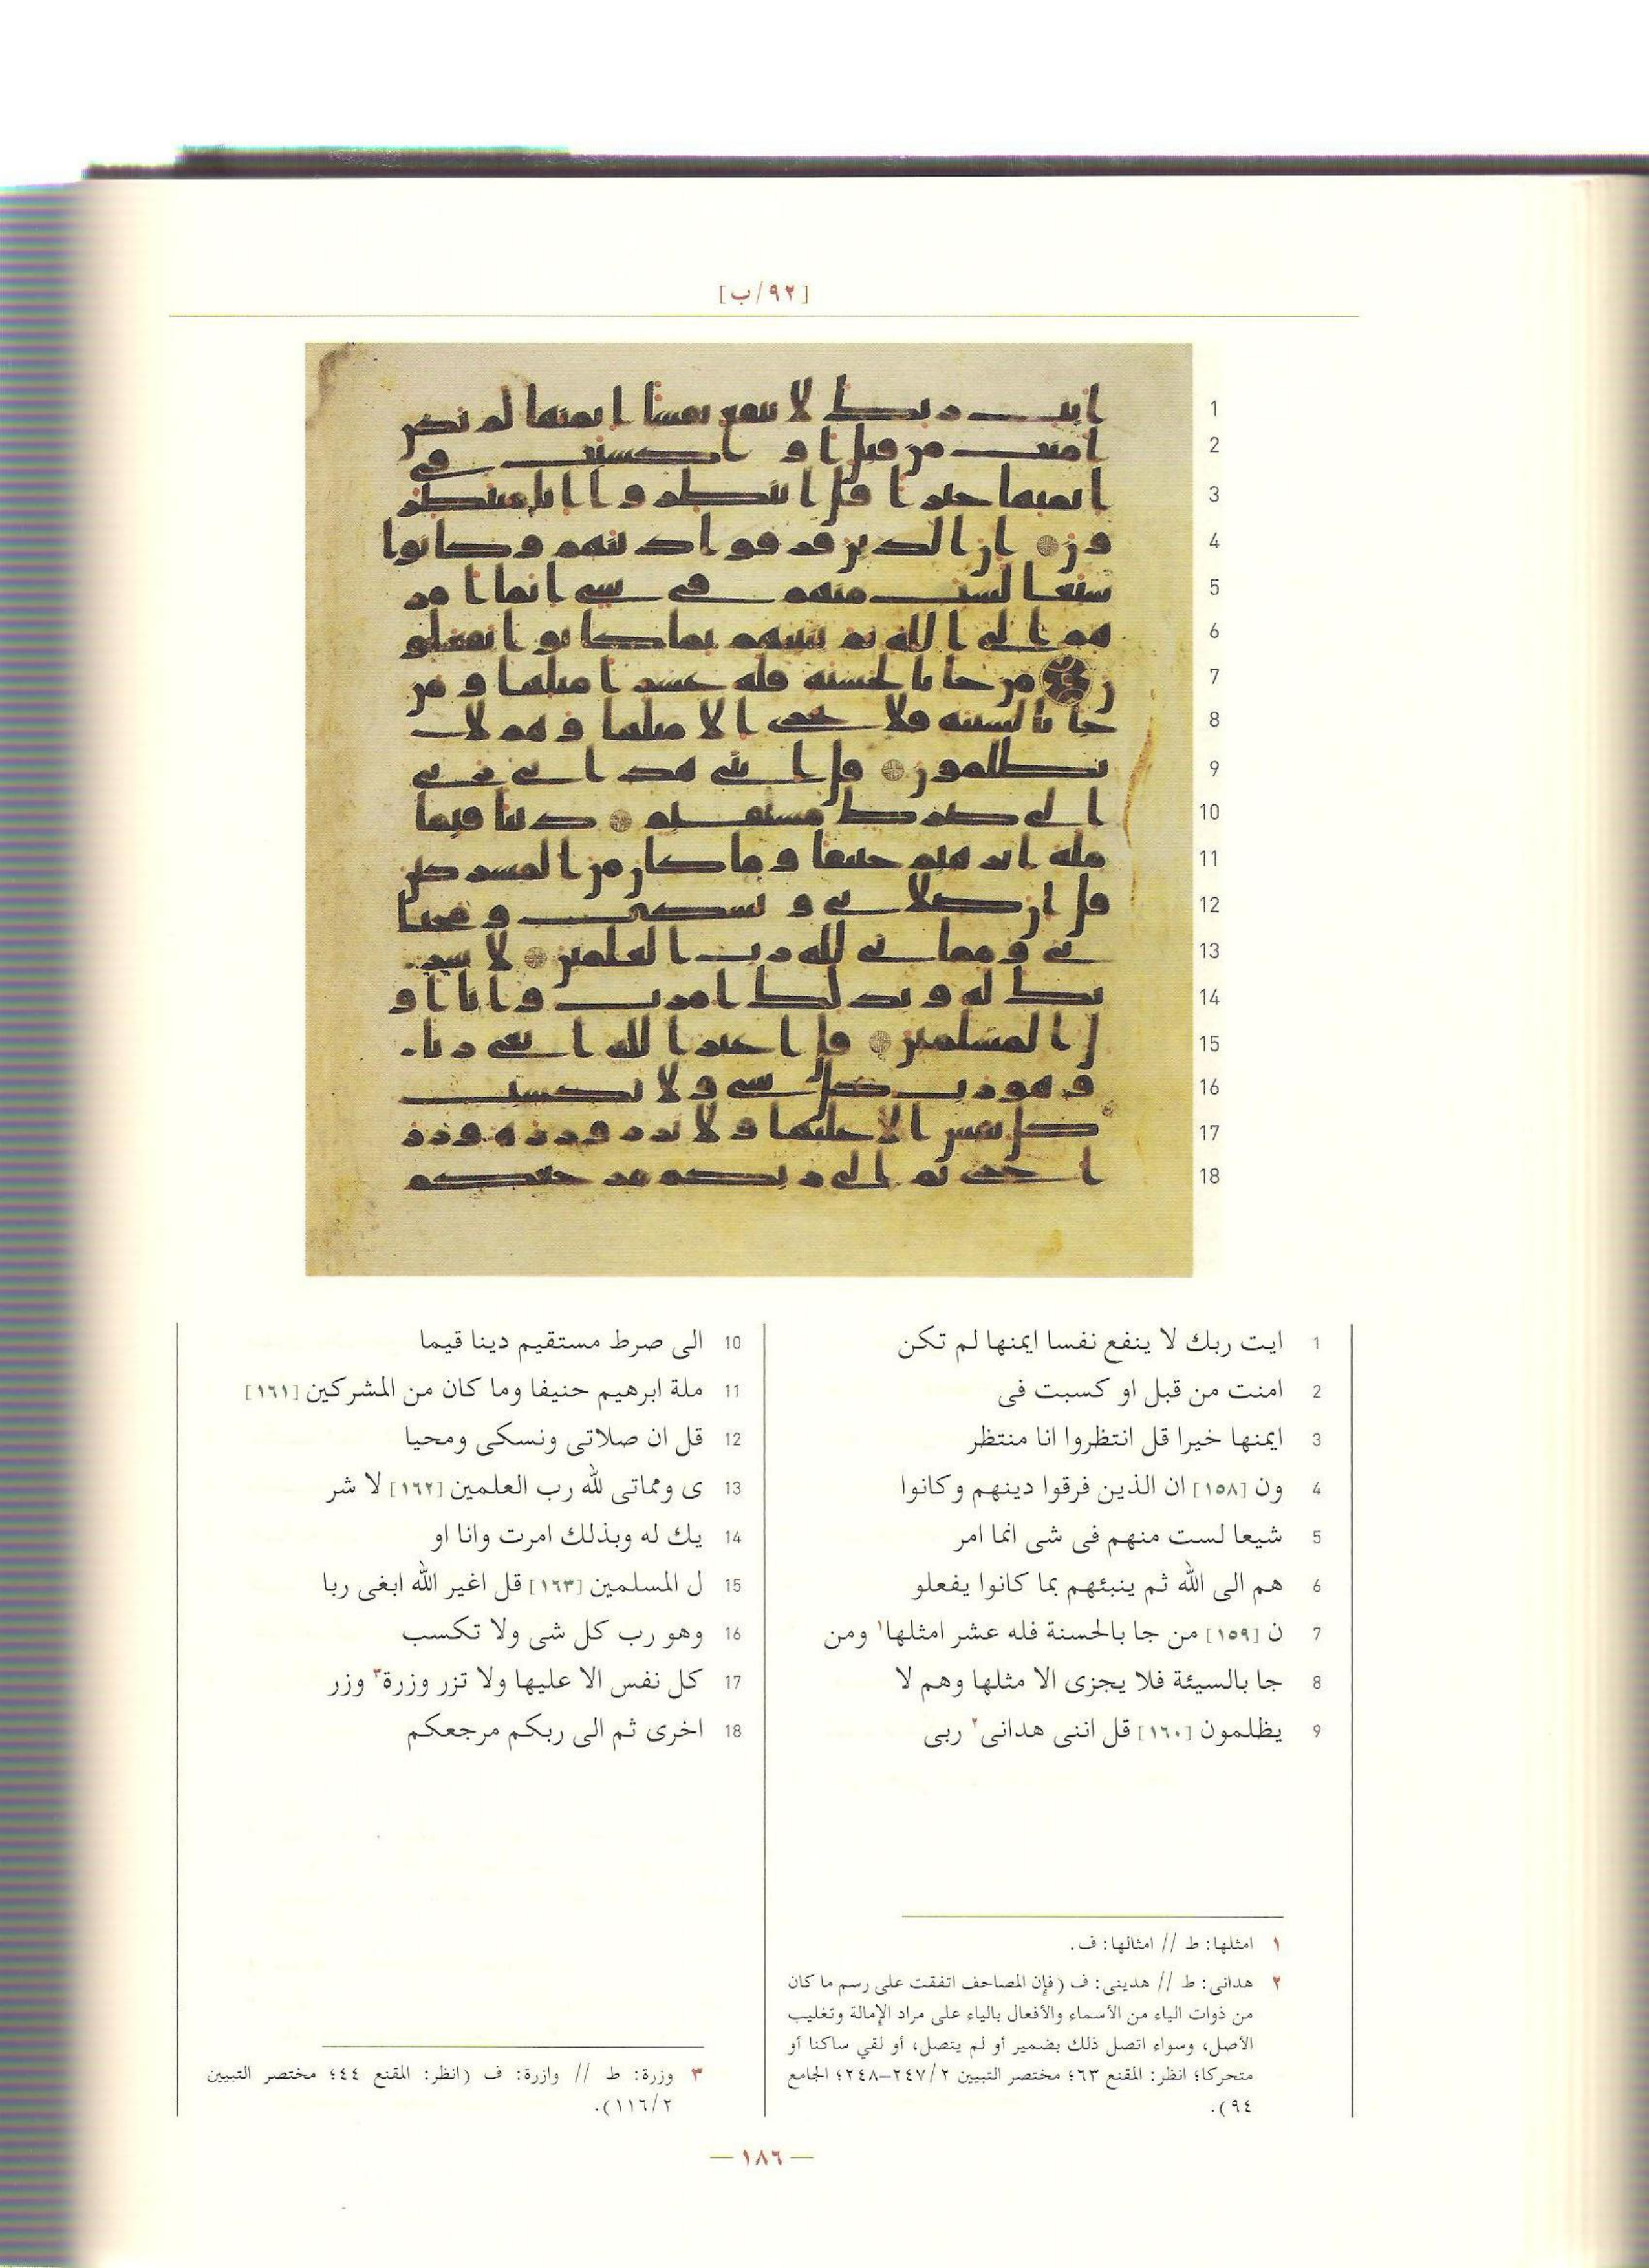 [٩٢/ب]
1 ايت ربك لا ينفع نفسا ايمنها لم تكن
2 امنت من قبل او كسبت فى
3 ايمنها خيرا قل انتظروا انا منتظر
4 ون [١٥٨] ان الذين فرقوا دينهم وكانوا
5 شيعا لست منهم فى شى انما امر
6 هم الى الله ثم ينبئهم بما كانوا يفعلو
7 ن [١٥٩] من جا بالحسنة فله عشر امثلها١ ومن
8 جا بالسيئة فلا يجزى الا مثلها وهم لا
9 يظلمون [١٦٠] قل اننى هدانى٢ ربى
10 الى صرط مستقيم دينا قيما
11 ملة ابرهيم حنيفا وما كان من المشركين [١٦١]
12 قل ان صلاتى ونسكى ومحيا
13 ى ومماتى لله رب العلمين [١٦٢] لا شر
14 يك له وبذلك امرت وانا او
15 ل المسلمين [١٦٣] قل اغير الله ابغى ربا
16 وهو رب كل شى ولا تكسب
17 كل نفس الا عليها ولا تزر وزرة٣ وزر
18 اخرى ثم الى ربكم مرجعكم
١ امثلها: ط // امثالها: ف.
٢ هدانى: ط // هدينى: ف (فإن المصاحف اتفقت على رسم ما كان
من ذوات الياء من الأسماء والأفعال بالياء على مراد الإمالة وتغليب
الأصل، وسواء اتصل ذلك بضمير أو لم يتصل، أو لقي ساكنا أو
متحركا؛ انظر: المقنع ٦٣؛ مختصر التبيين ٢/‏٢٤٧–٢٤٨؛ الجامع
٩٤).
٣ وزرة: ط // وازرة: ف (انظر: المقنع ٤٤؛ مختصر التبيين
٢/‏١١٦).
— ١٨٦ —